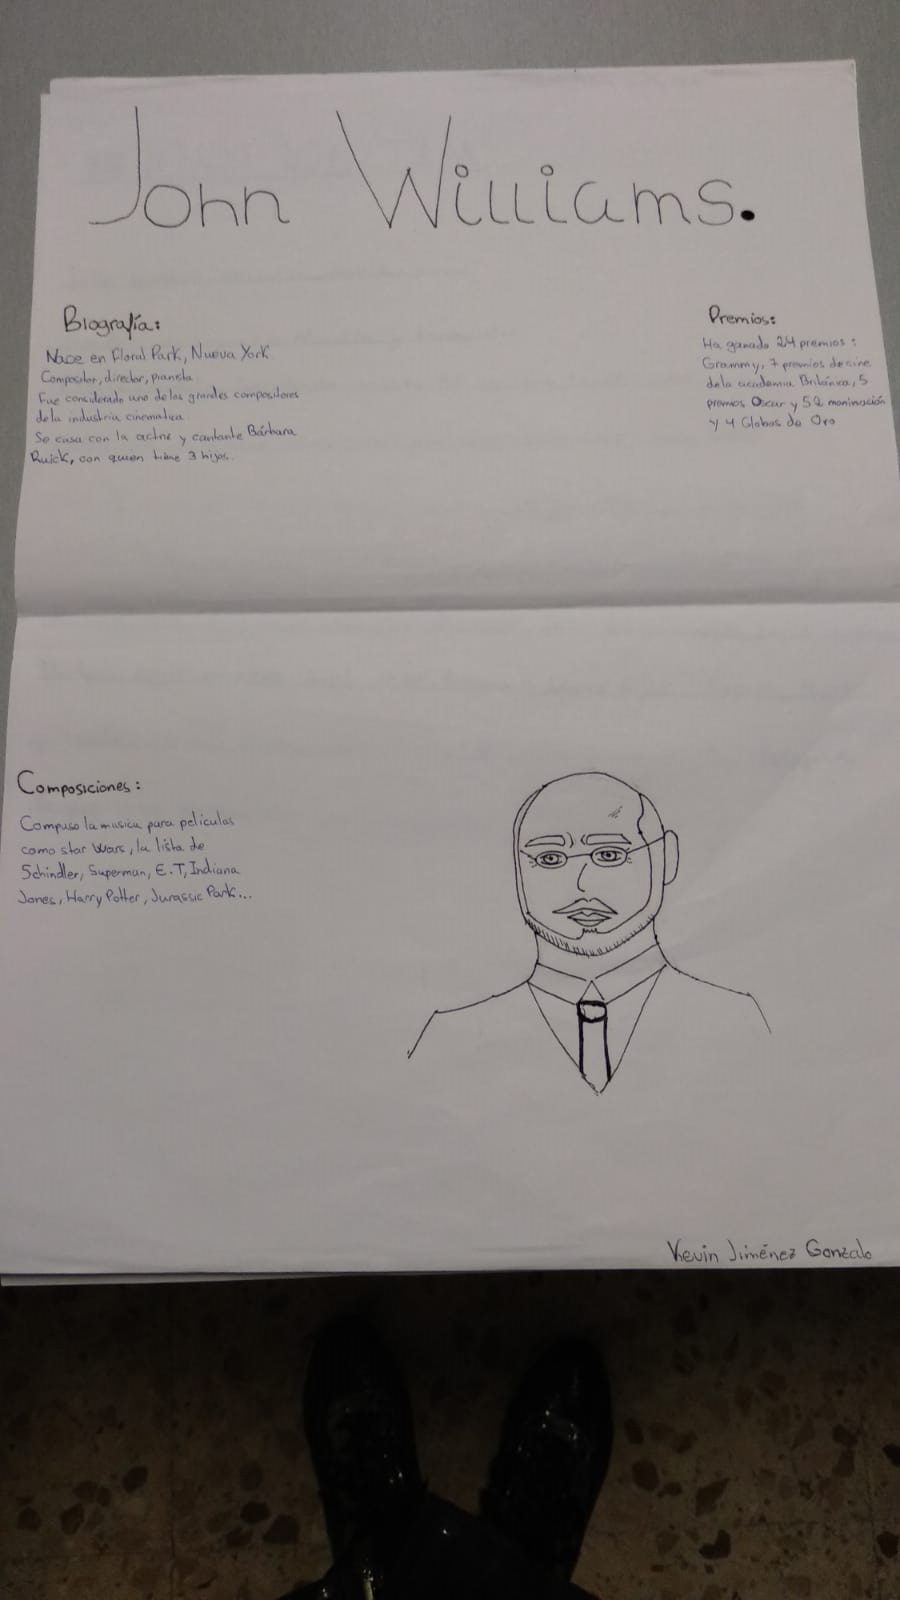 John Williams.
Biografía:
Nace en Floral Park, Nueva York
Compositor, director, pianista.
Fue considerado uno de los grandes compositores
de la industria cinematica.
Se casa con la actriz y cantante Bárbara
Ruick, con quien tiene 3 hijos.
Premios:
Ha ganado 24 premios:
Grammy, 7 premios de cine
de la academia Británica, 5
premios Oscar y 52 moninación
y 4 Globos de Oro
Composiciones:
Compuso la musica para peliculas
como star Wars, la lista de
Schindler, Superman, E.T, Indiana
Jones, Harry Potter, Jurassic Park...
Kevin Jiménez Gonzalo